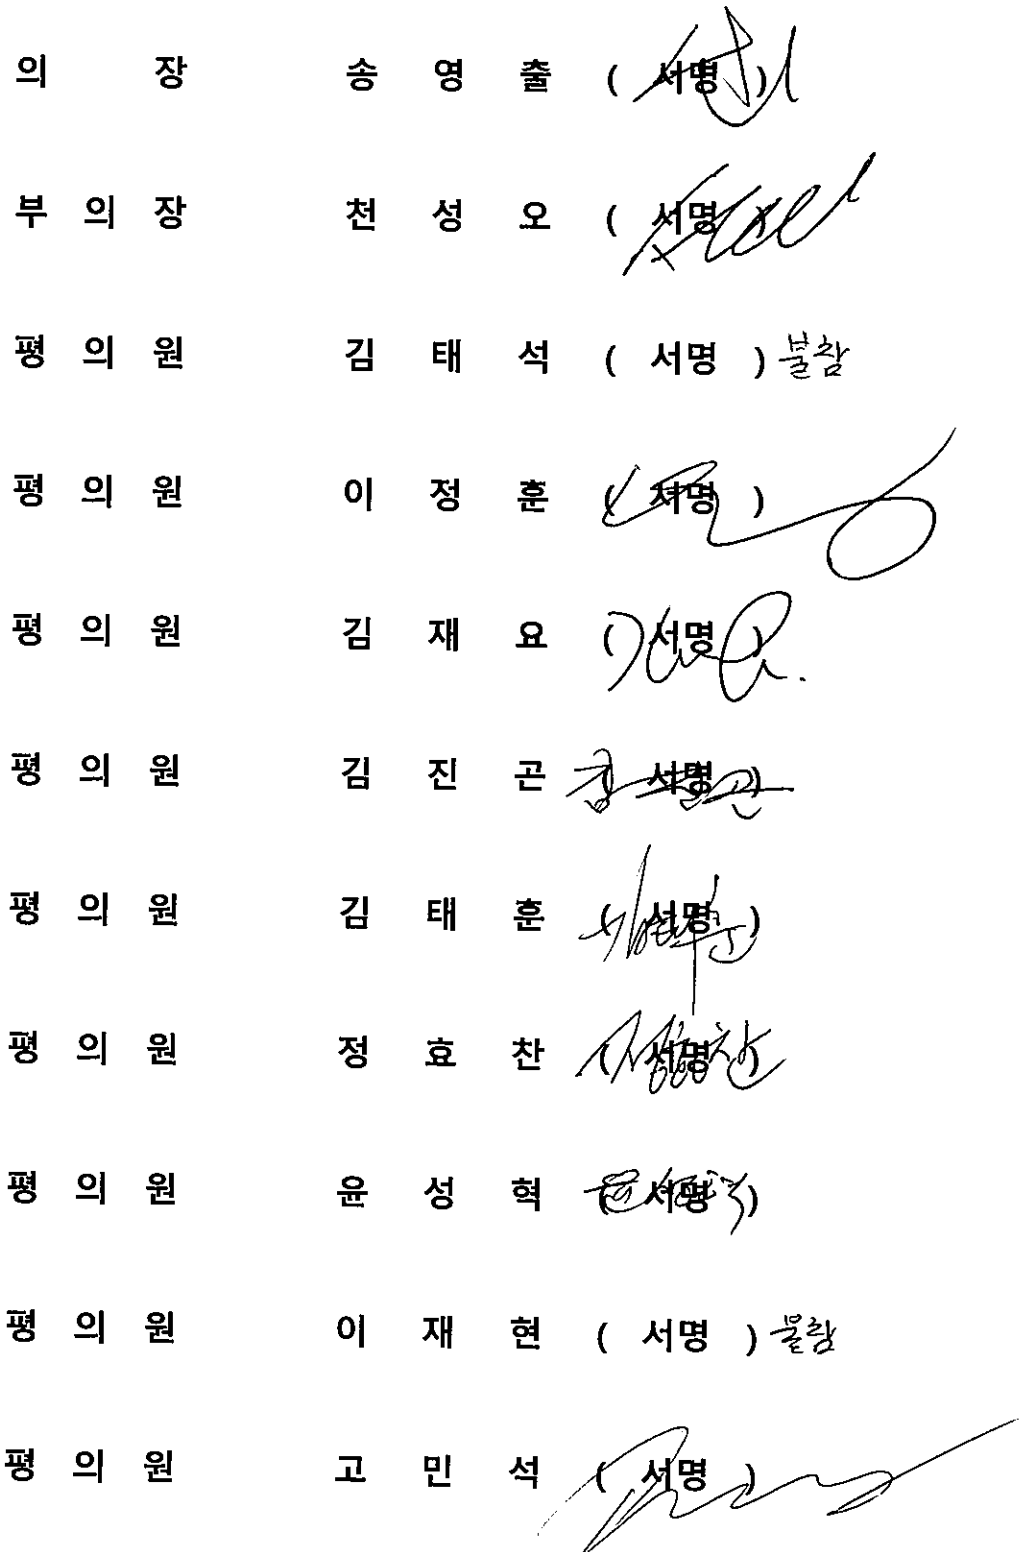 의 장 송 영 출 ( 서명 )
부 의 장 천 성 오 ( 서명 )
평 의 원 김 태 석 ( 서명 ) 불참
평 의 원 이 정 훈 ( 서명 )
평 의 원 김 재 요 ( 서명 )
평 의 원 김 진 곤 ( 서명 )
평 의 원 김 태 훈 ( 서명 )
평 의 원 정 효 찬 ( 서명 )
평 의 원 윤 성 혁 ( 서명 )
평 의 원 이 재 현 ( 서명 ) 불참
평 의 원 고 민 석 ( 서명 )